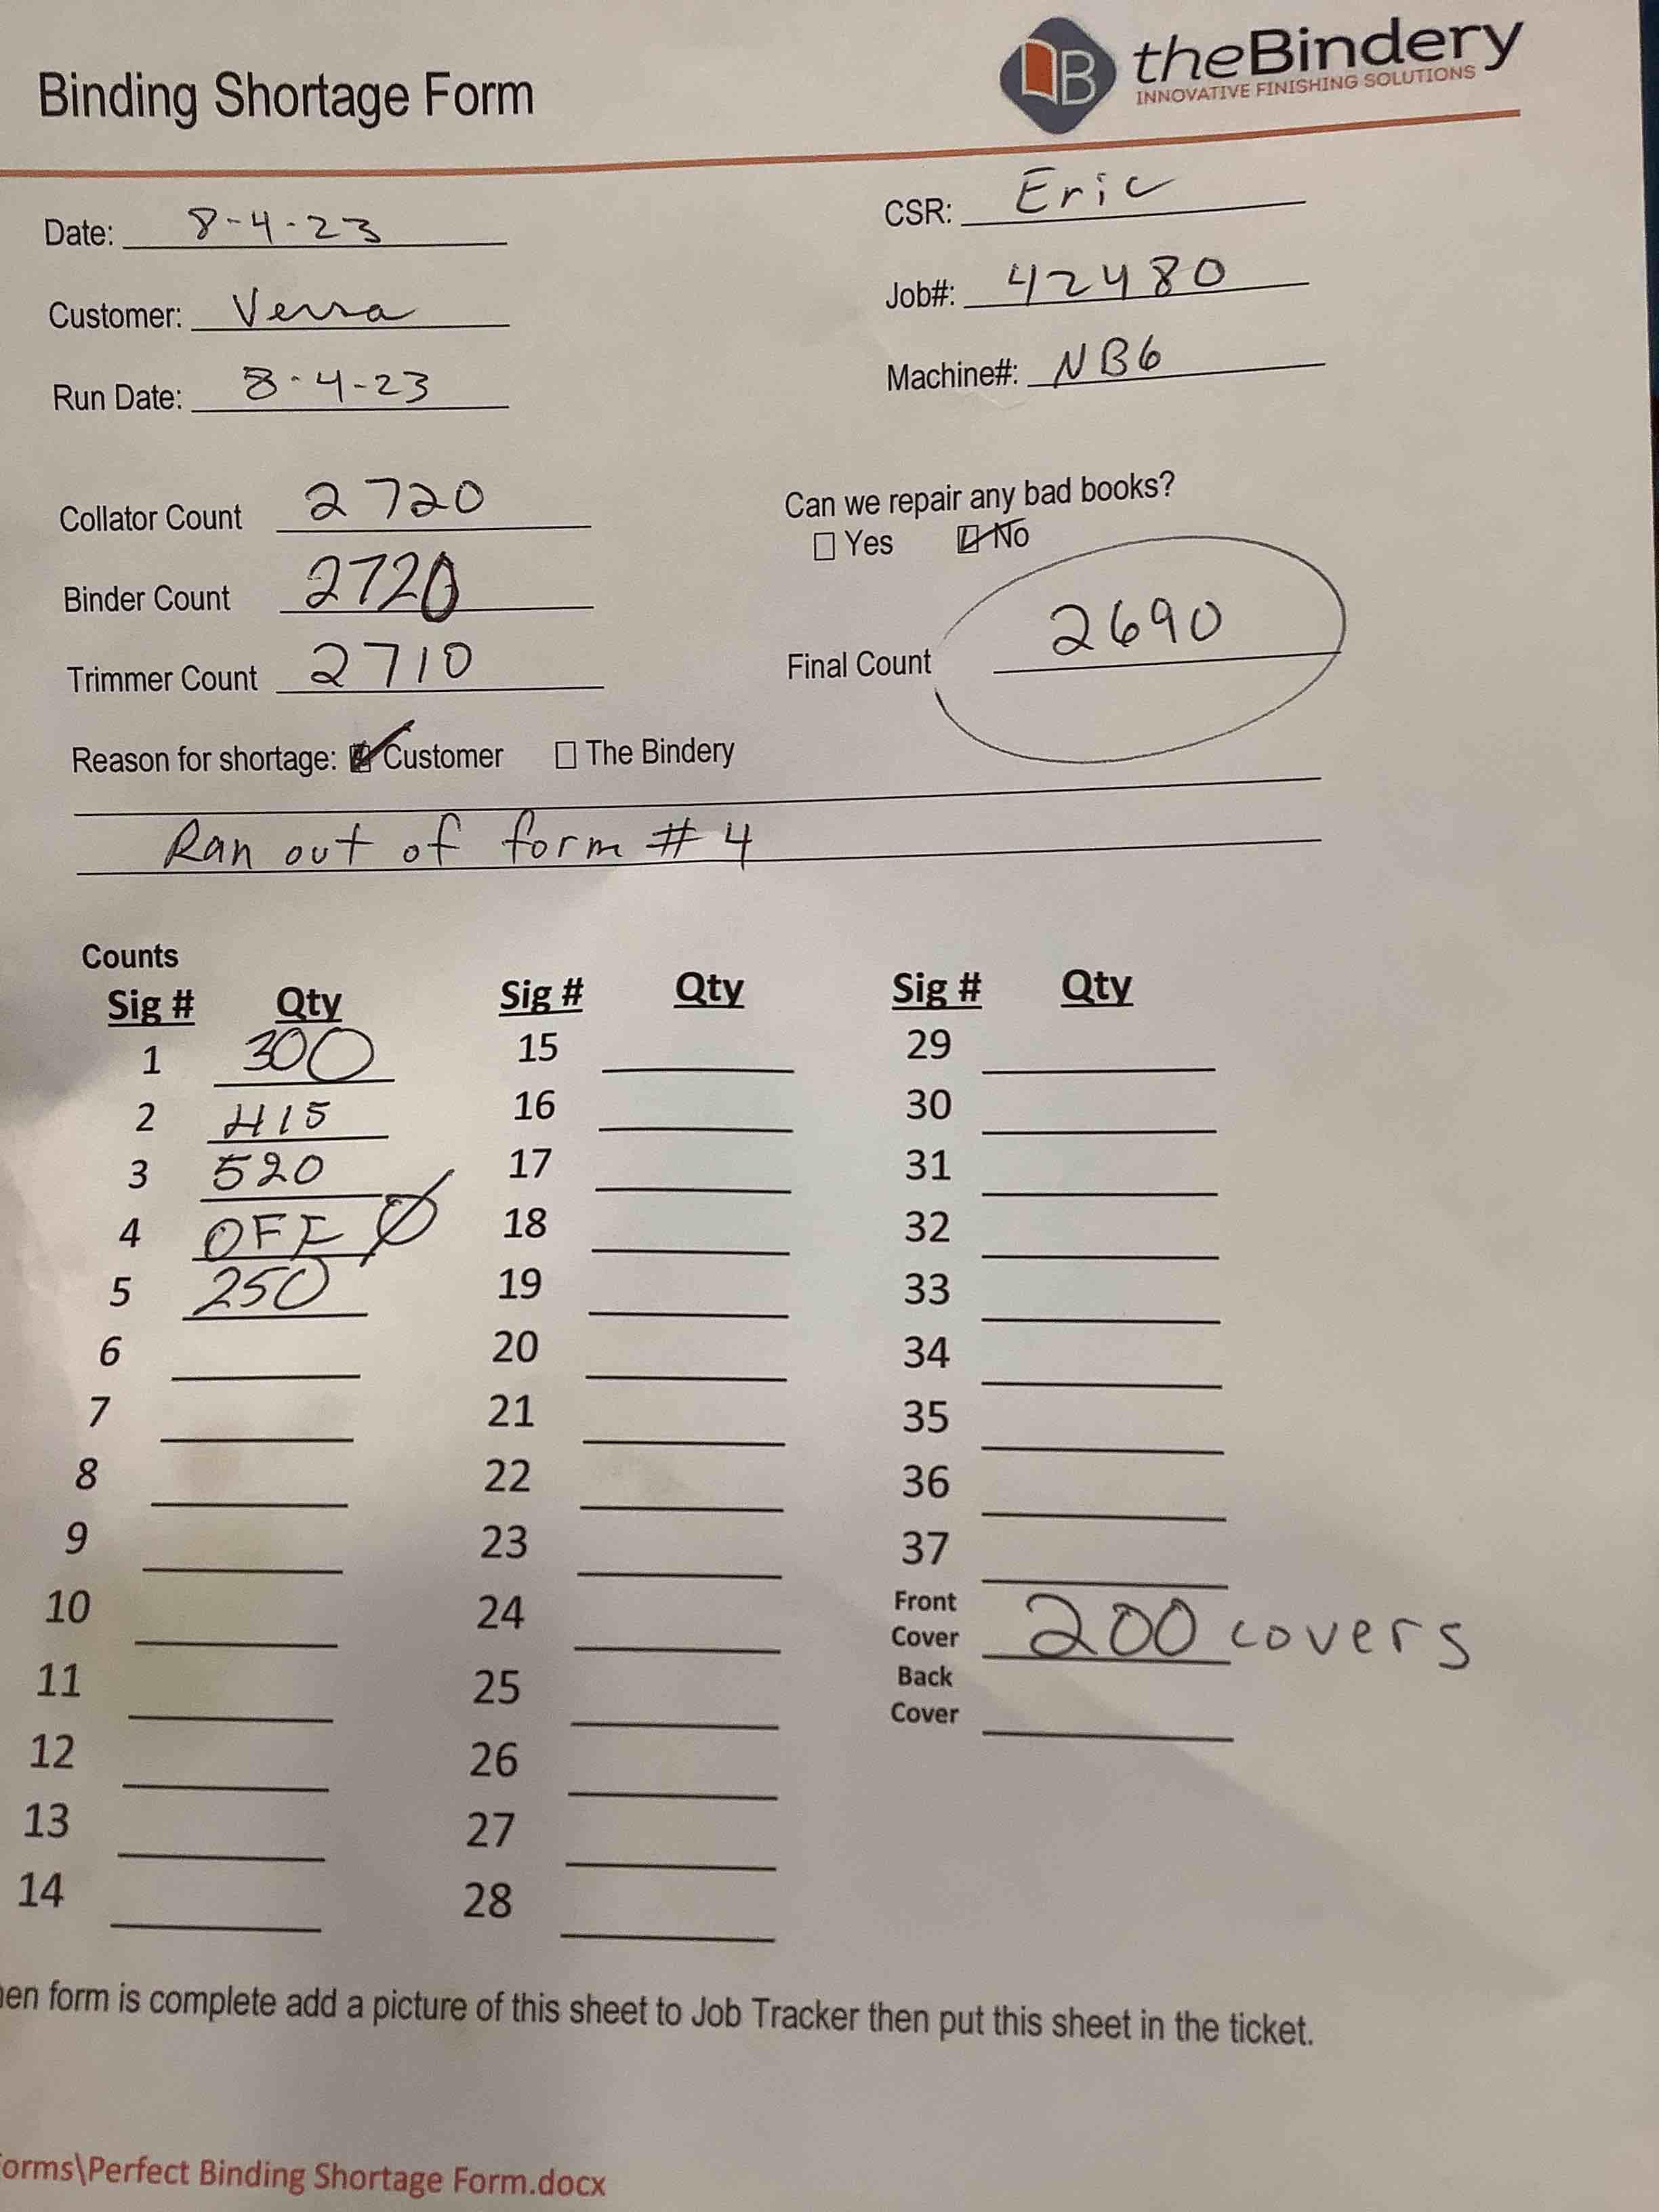 Binding Shortage Form
B theBindery
INNOVATIVE FINISHING SOLUTIONS
Date: 8-4-23
CSR: Eric
Customer: Versa
Job#: 42480
Run Date: 8-4-23
Machine#: NB6
Collator Count 2720
Can we repair any bad books?
Yes No
Binder Count 2720
Final Count 2690
Trimmer Count 2710
Reason for shortage: Customer The Bindery
Ran out of form # 4
Counts
Sig # Qty Sig # Qty Sig # Qty
1 300 15 29
2 415 16 30
3 520 17 31
4 OFF Ø 18 32
5 250 19 33
6 20 34
7 21 35
8 22 36
9 23 37
10 24 Front Cover 200 covers
11 25 Back Cover
12 26
13 27
14 28
en form is complete add a picture of this sheet to Job Tracker then put this sheet in the ticket.
orms\Perfect Binding Shortage Form.docx